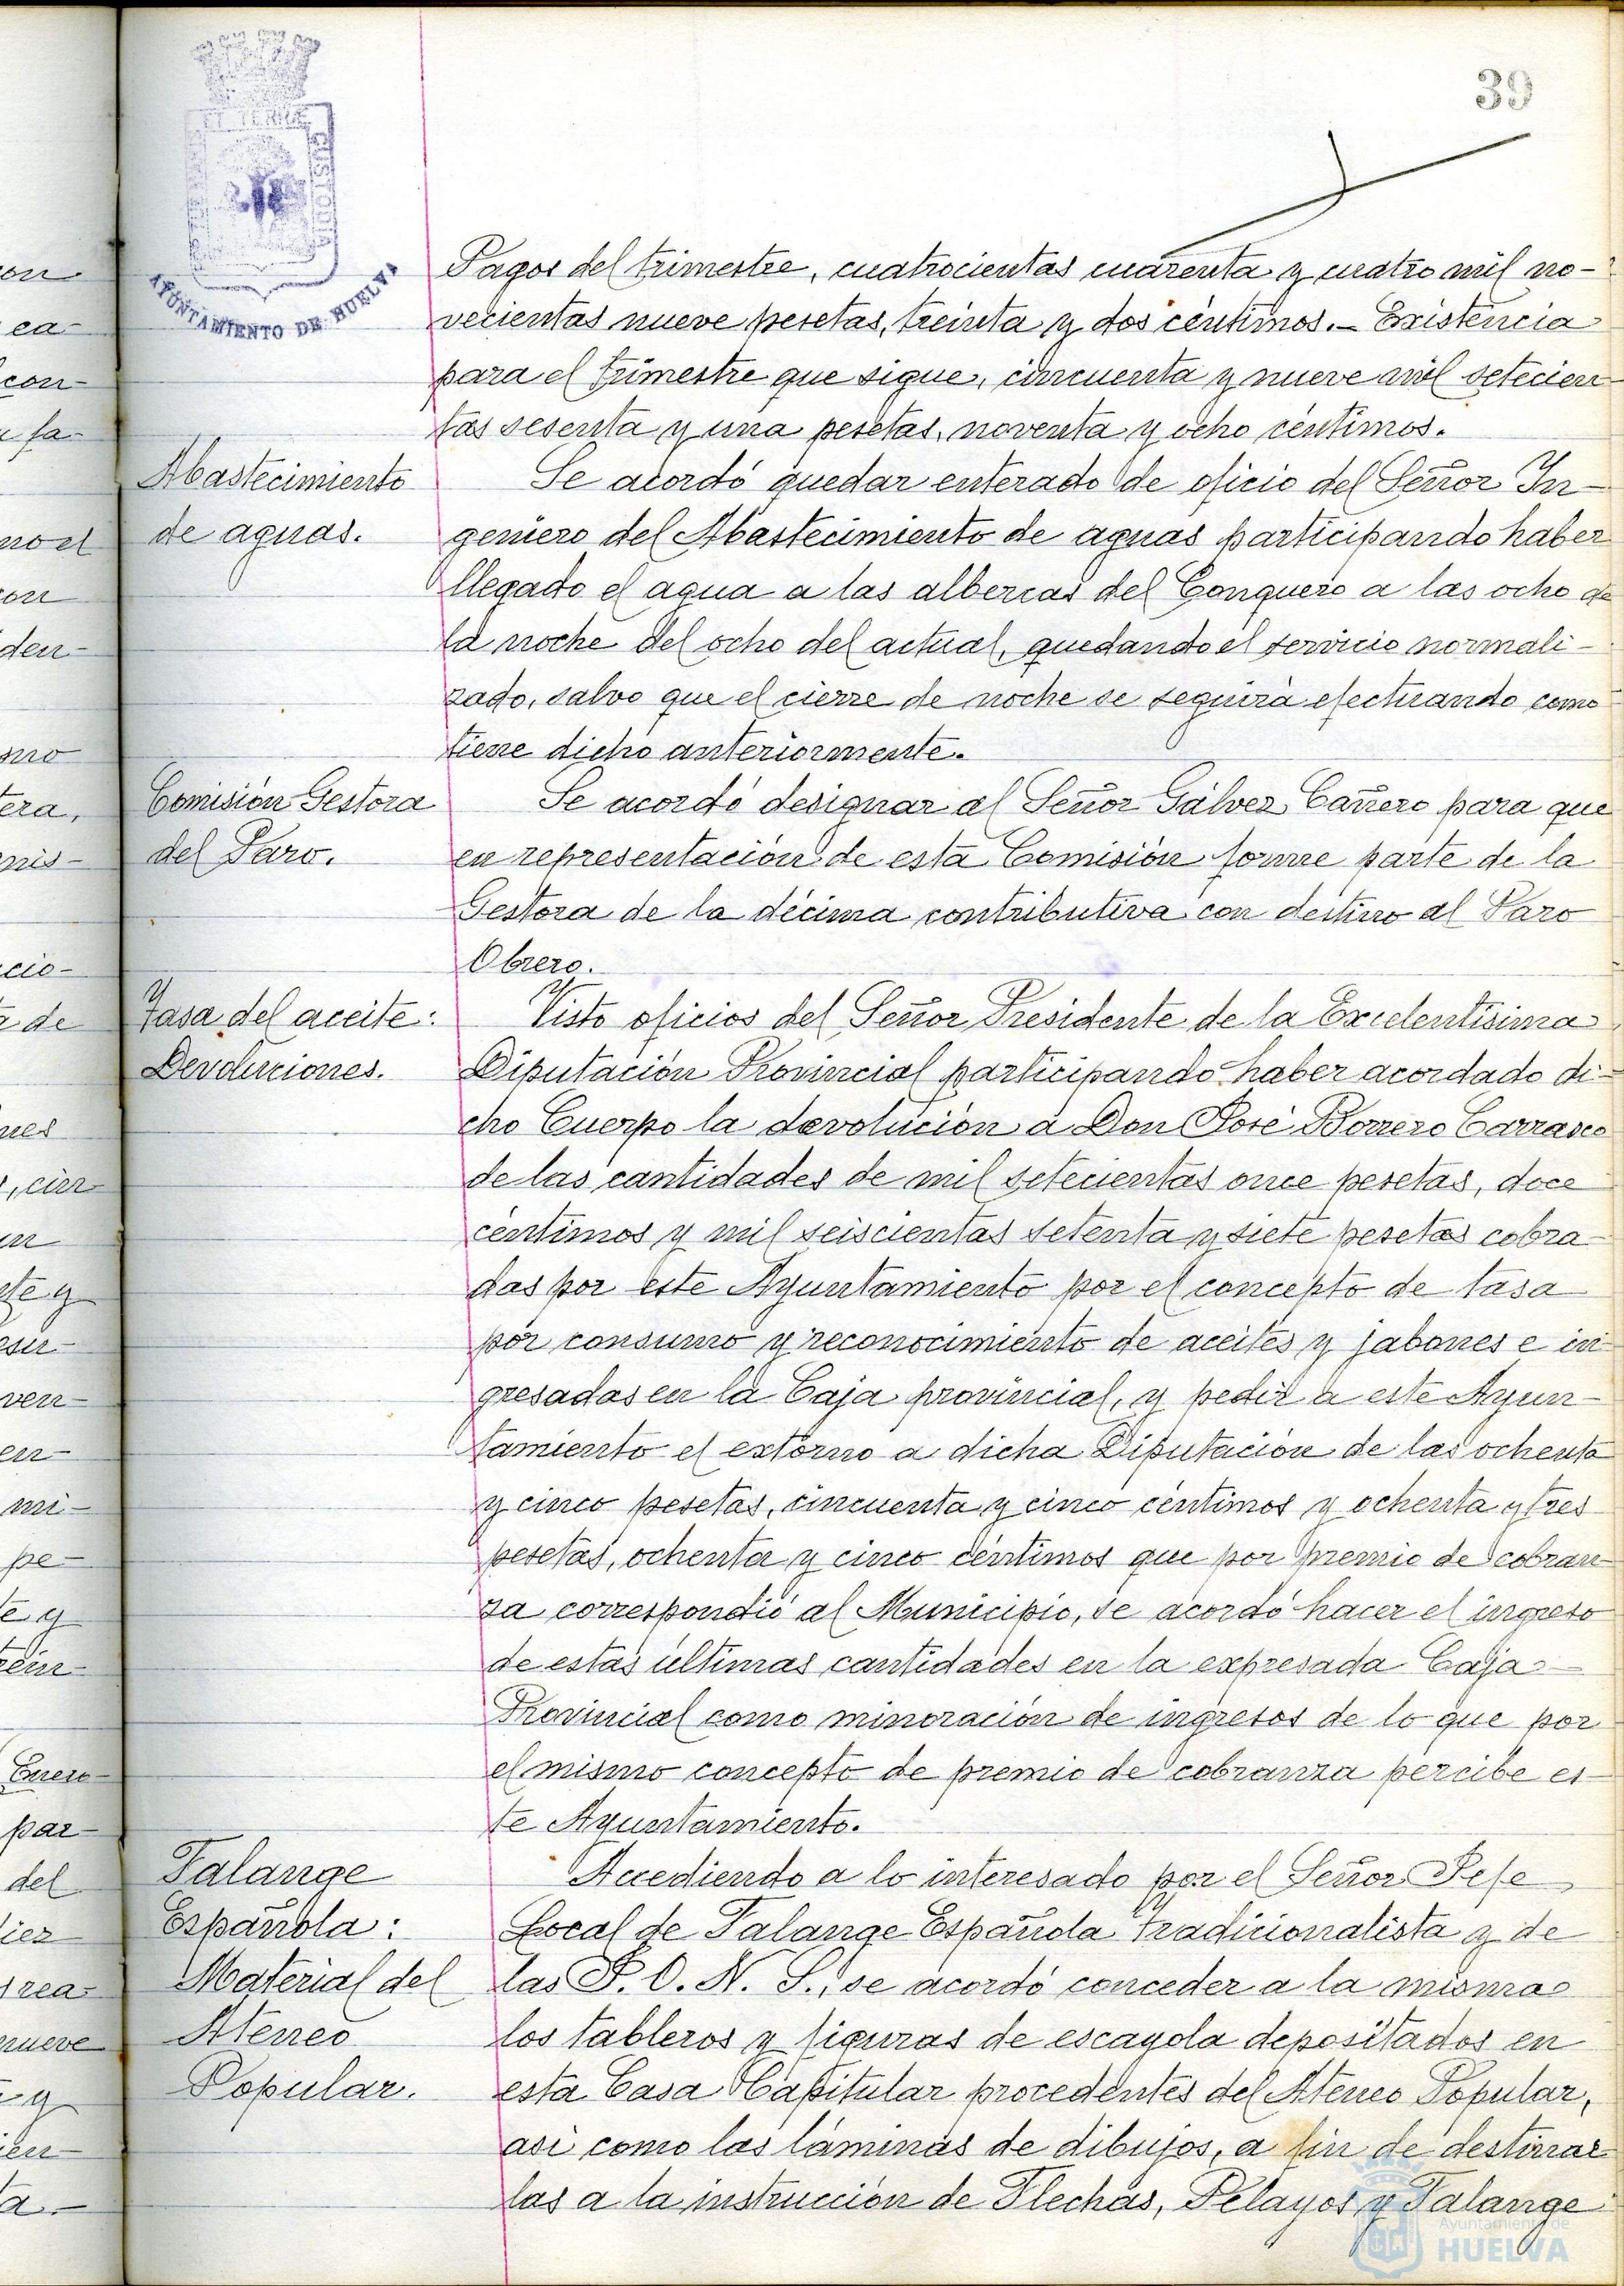 39
AYUNTAMIENTO DE HUELVA
Pagos del trimestre, cuatrocientas cuarenta y cuatro mil no-
vecientas nueve pesetas, treinta y dos céntimos.- Existencia
para el trimestre que sigue, cincuenta y nueve mil setecien-
tas sesenta y una pesetas, noventa y ocho céntimos.
Abastecimiento
de aguas.
Se acordó quedar enterado de oficio del Señor In-
geniero del Abastecimiento de aguas participando haber
llegado el agua a las albercas del Conquero a las ocho de
la noche del ocho del actual, quedando el servicio normali-
zado, salvo que el cierre de noche se seguirá efectuando como
tiene dicho anteriormente.
Comisión Gestora
del Paro.
Se acordó designar al Señor Gálvez Cañero para que
en representación de esta Comisión forme parte de la
Gestora de la décima contributiva con destino al Paro
Obrero.
Tasa del aceite:
Devoluciones.
Visto oficios del Señor Presidente de la Excelentísima
Diputación Provincial participando haber acordado di-
cho Cuerpo la devolución a Don José Borrero Carrasco
de las cantidades de mil setecientas once pesetas, doce
céntimos y mil seiscientas setenta y siete pesetas cobra-
das por este Ayuntamiento por el concepto de tasa
por consumo y reconocimiento de aceites y jabones e in-
gresadas en la Caja provincial, y pedir a este Ayun-
tamiento el extorno a dicha Diputación de las ochenta
y cinco pesetas, cincuenta y cinco céntimos y ochenta y tres
pesetas, ochenta y cinco céntimos que por premio de cobran-
za correspondió al Municipio, se acordó hacer el ingreso
de estas últimas cantidades en la expresada Caja
Provincial como minoración de ingresos de lo que por
el mismo concepto de premio de cobranza percibe es-
te Ayuntamiento.
Falange
Española:
Material del
Ateneo
Popular.
Accediendo a lo interesado por el Señor Jefe
Local de Falange Española Tradicionalista y de
las J. O. N. S., se acordó conceder a la misma
los tableros y figuras de escayola depositados en
esta Casa Capitular procedentes del Ateneo Popular,
asi como las láminas de dibujos, a fin de destinar-
las a la instrucción de Flechas, Pelayos y Falange
Ayuntamiento de
HUELVA